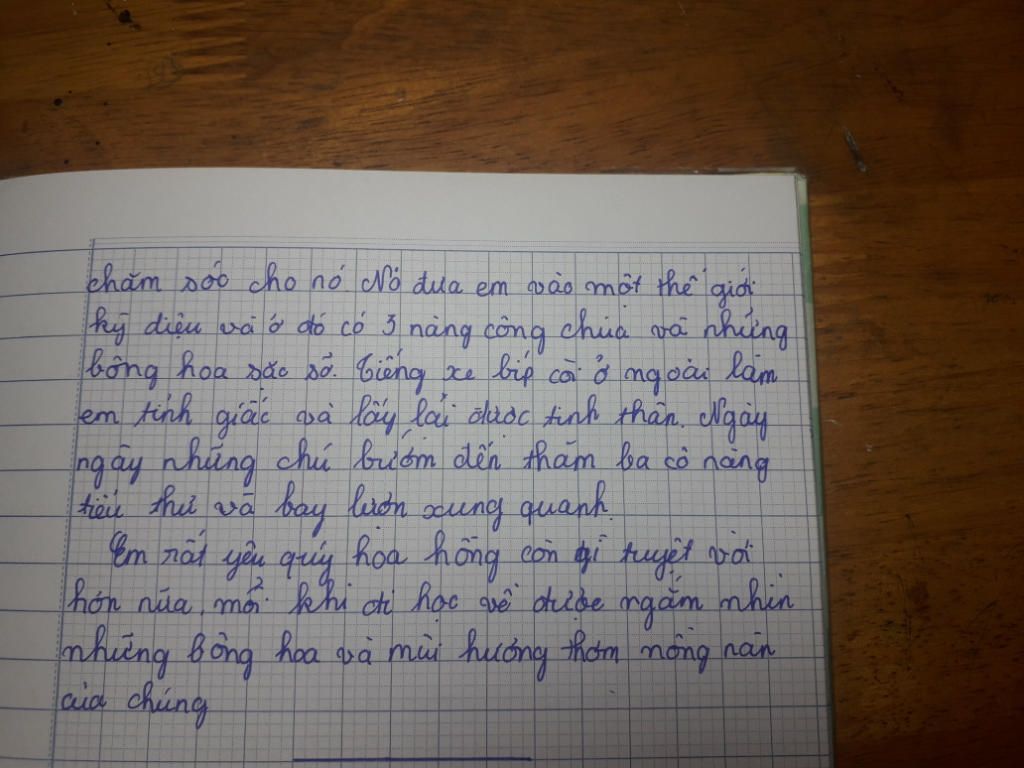 chăm sóc cho nó Nó đưa em vào một thế giới
kỳ diệu và ở đó có 3 nàng công chúa và những
bông hoa sặc sỡ. Tiếng xe bíp còi ở ngoài làm
em tỉnh giấc và lấy lại được tinh thần. Ngày
ngày những chú bướm đến thăm ba cô nàng
tiểu thư và bay lượn xung quanh.
Em rất yêu quý hoa hồng còn gì tuyệt vời
hơn nữa, mỗi khi đi học về được ngắm nhìn
những bông hoa và mùi hương thơm nồng nàn
của chúng